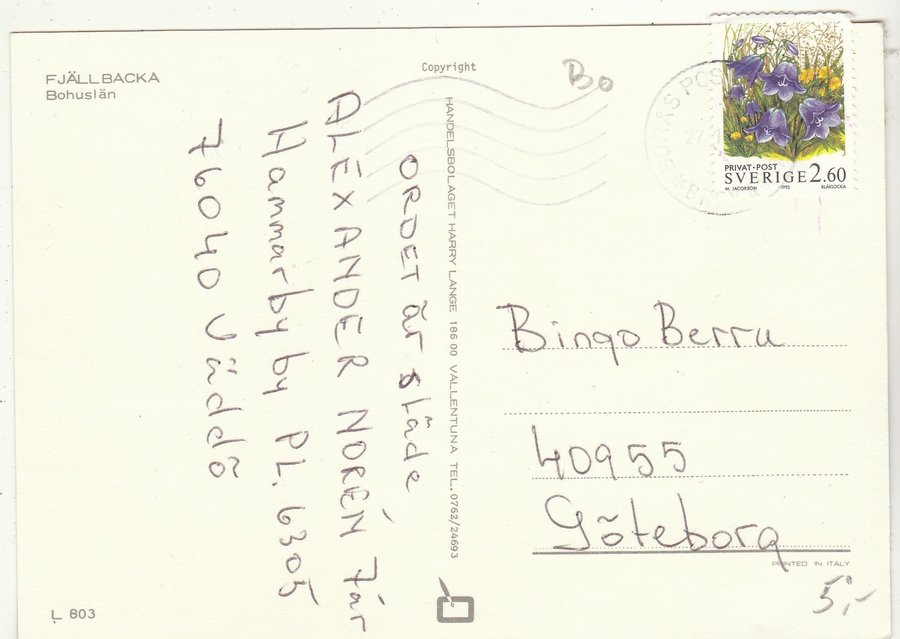 FJÄLLBACKA
Bohuslän
Copyright
Bo
PRIVAT • POST
SVERIGE 2.60
M. JACOBSON 1993 BLÅKLOCKA
HANDELSBOLAGET HARRY LANGE 186 00 VALLENTUNA TEL. 0762/24693
ORDET är släde
ALEXANDER NORÉN 7år
Hammarby by PL. 6305
76040 Väddö
Bingo Berra
40955
Göteborg
PRINTED IN ITALY
5:-
L 803